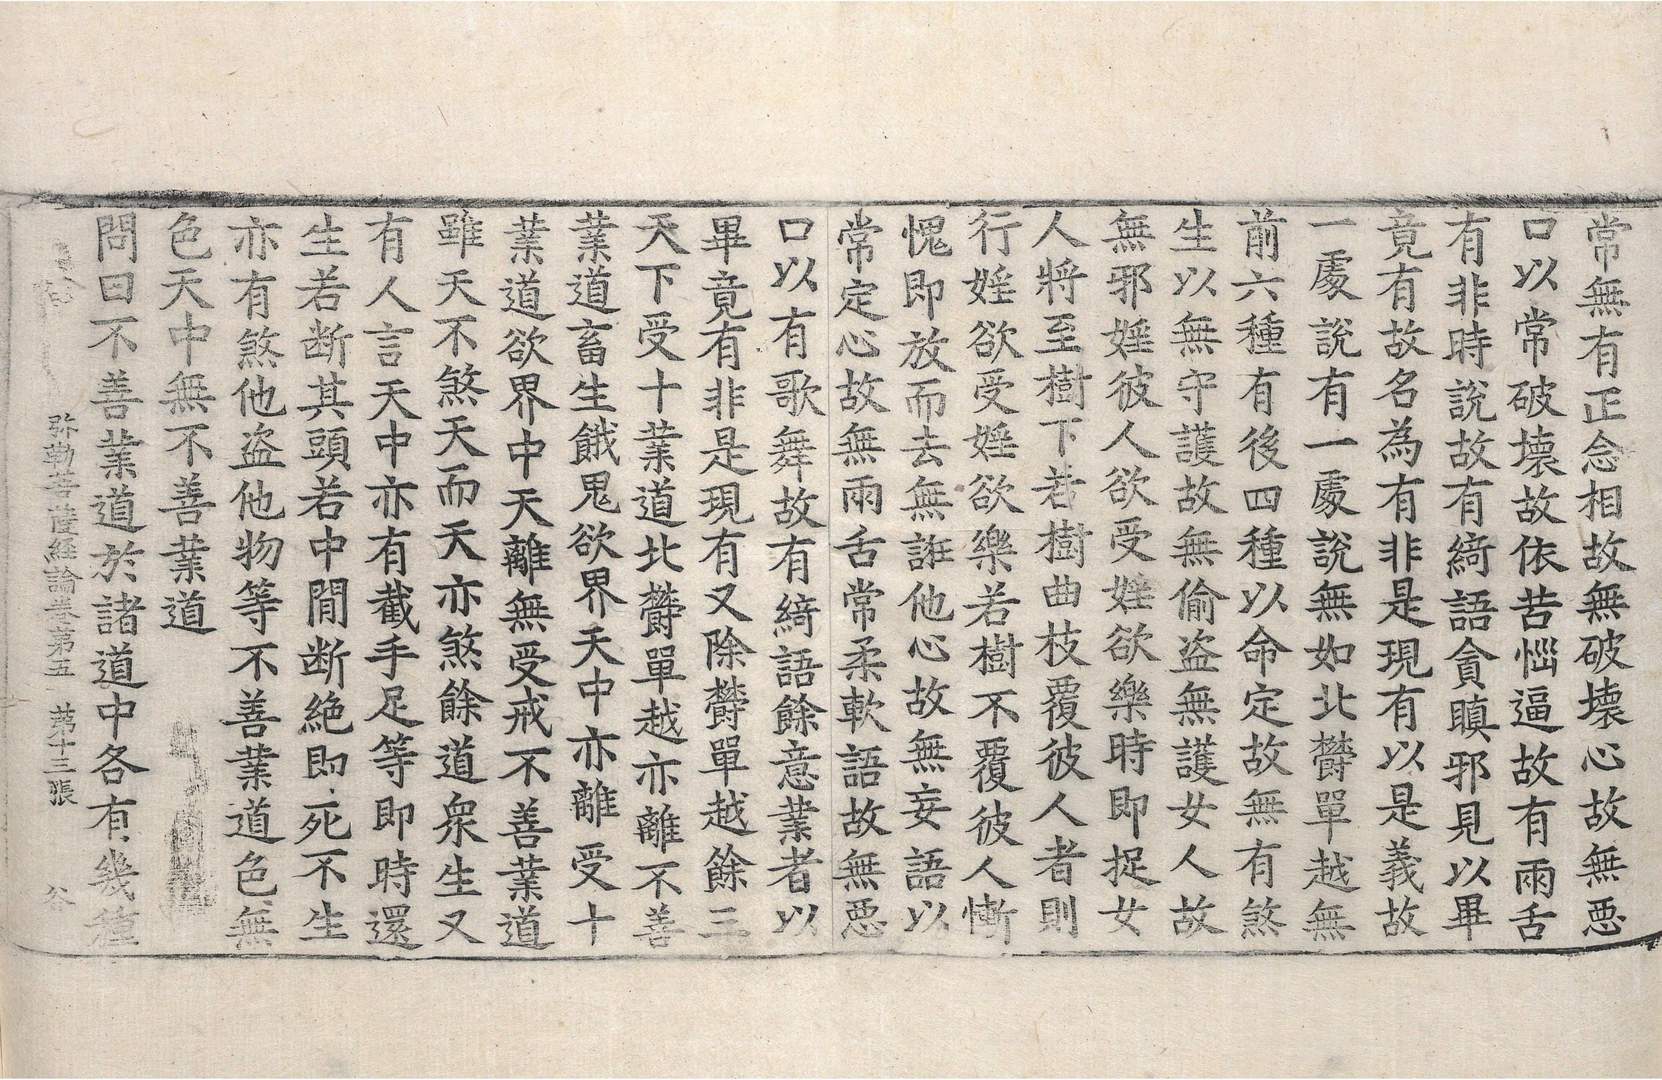 常無有正念相故無破壞心故無惡
口以常破壞故依苦惱逼故有兩舌
有非時說故有綺語貪瞋邪見以畢
竟有故名為有非是現有以是義故
一處說有一處說無如北欝單越無
前六種有後四種以命定故無有煞
生以無守護故無偷盜無護女人故
無邪婬彼人欲受婬欲樂時即捉女
人將至樹下若樹曲枝覆彼人者則
行婬欲受婬欲樂若樹不覆彼人慚
愧即放而去無誑他心故無妄語以
常定心故無兩舌常柔軟語故無惡
口以有歌舞故有綺語餘意業者以
畢竟有非是現有又除欝單越餘三
天下受十業道北欝單越亦離不善
業道畜生餓鬼欲界天中亦離受十
業道欲界中天離無受戒不善業道
雖天不煞天而天亦煞餘道眾生又
有人言天中亦有截手足等即時還
生若断其頭若中間断絕即死不生
亦有煞他盜他物等不善業道色無
色天中無不善業道
問曰不善業道於諸道中各有幾種
弥勒菩薩經論卷第五 第十三張 谷